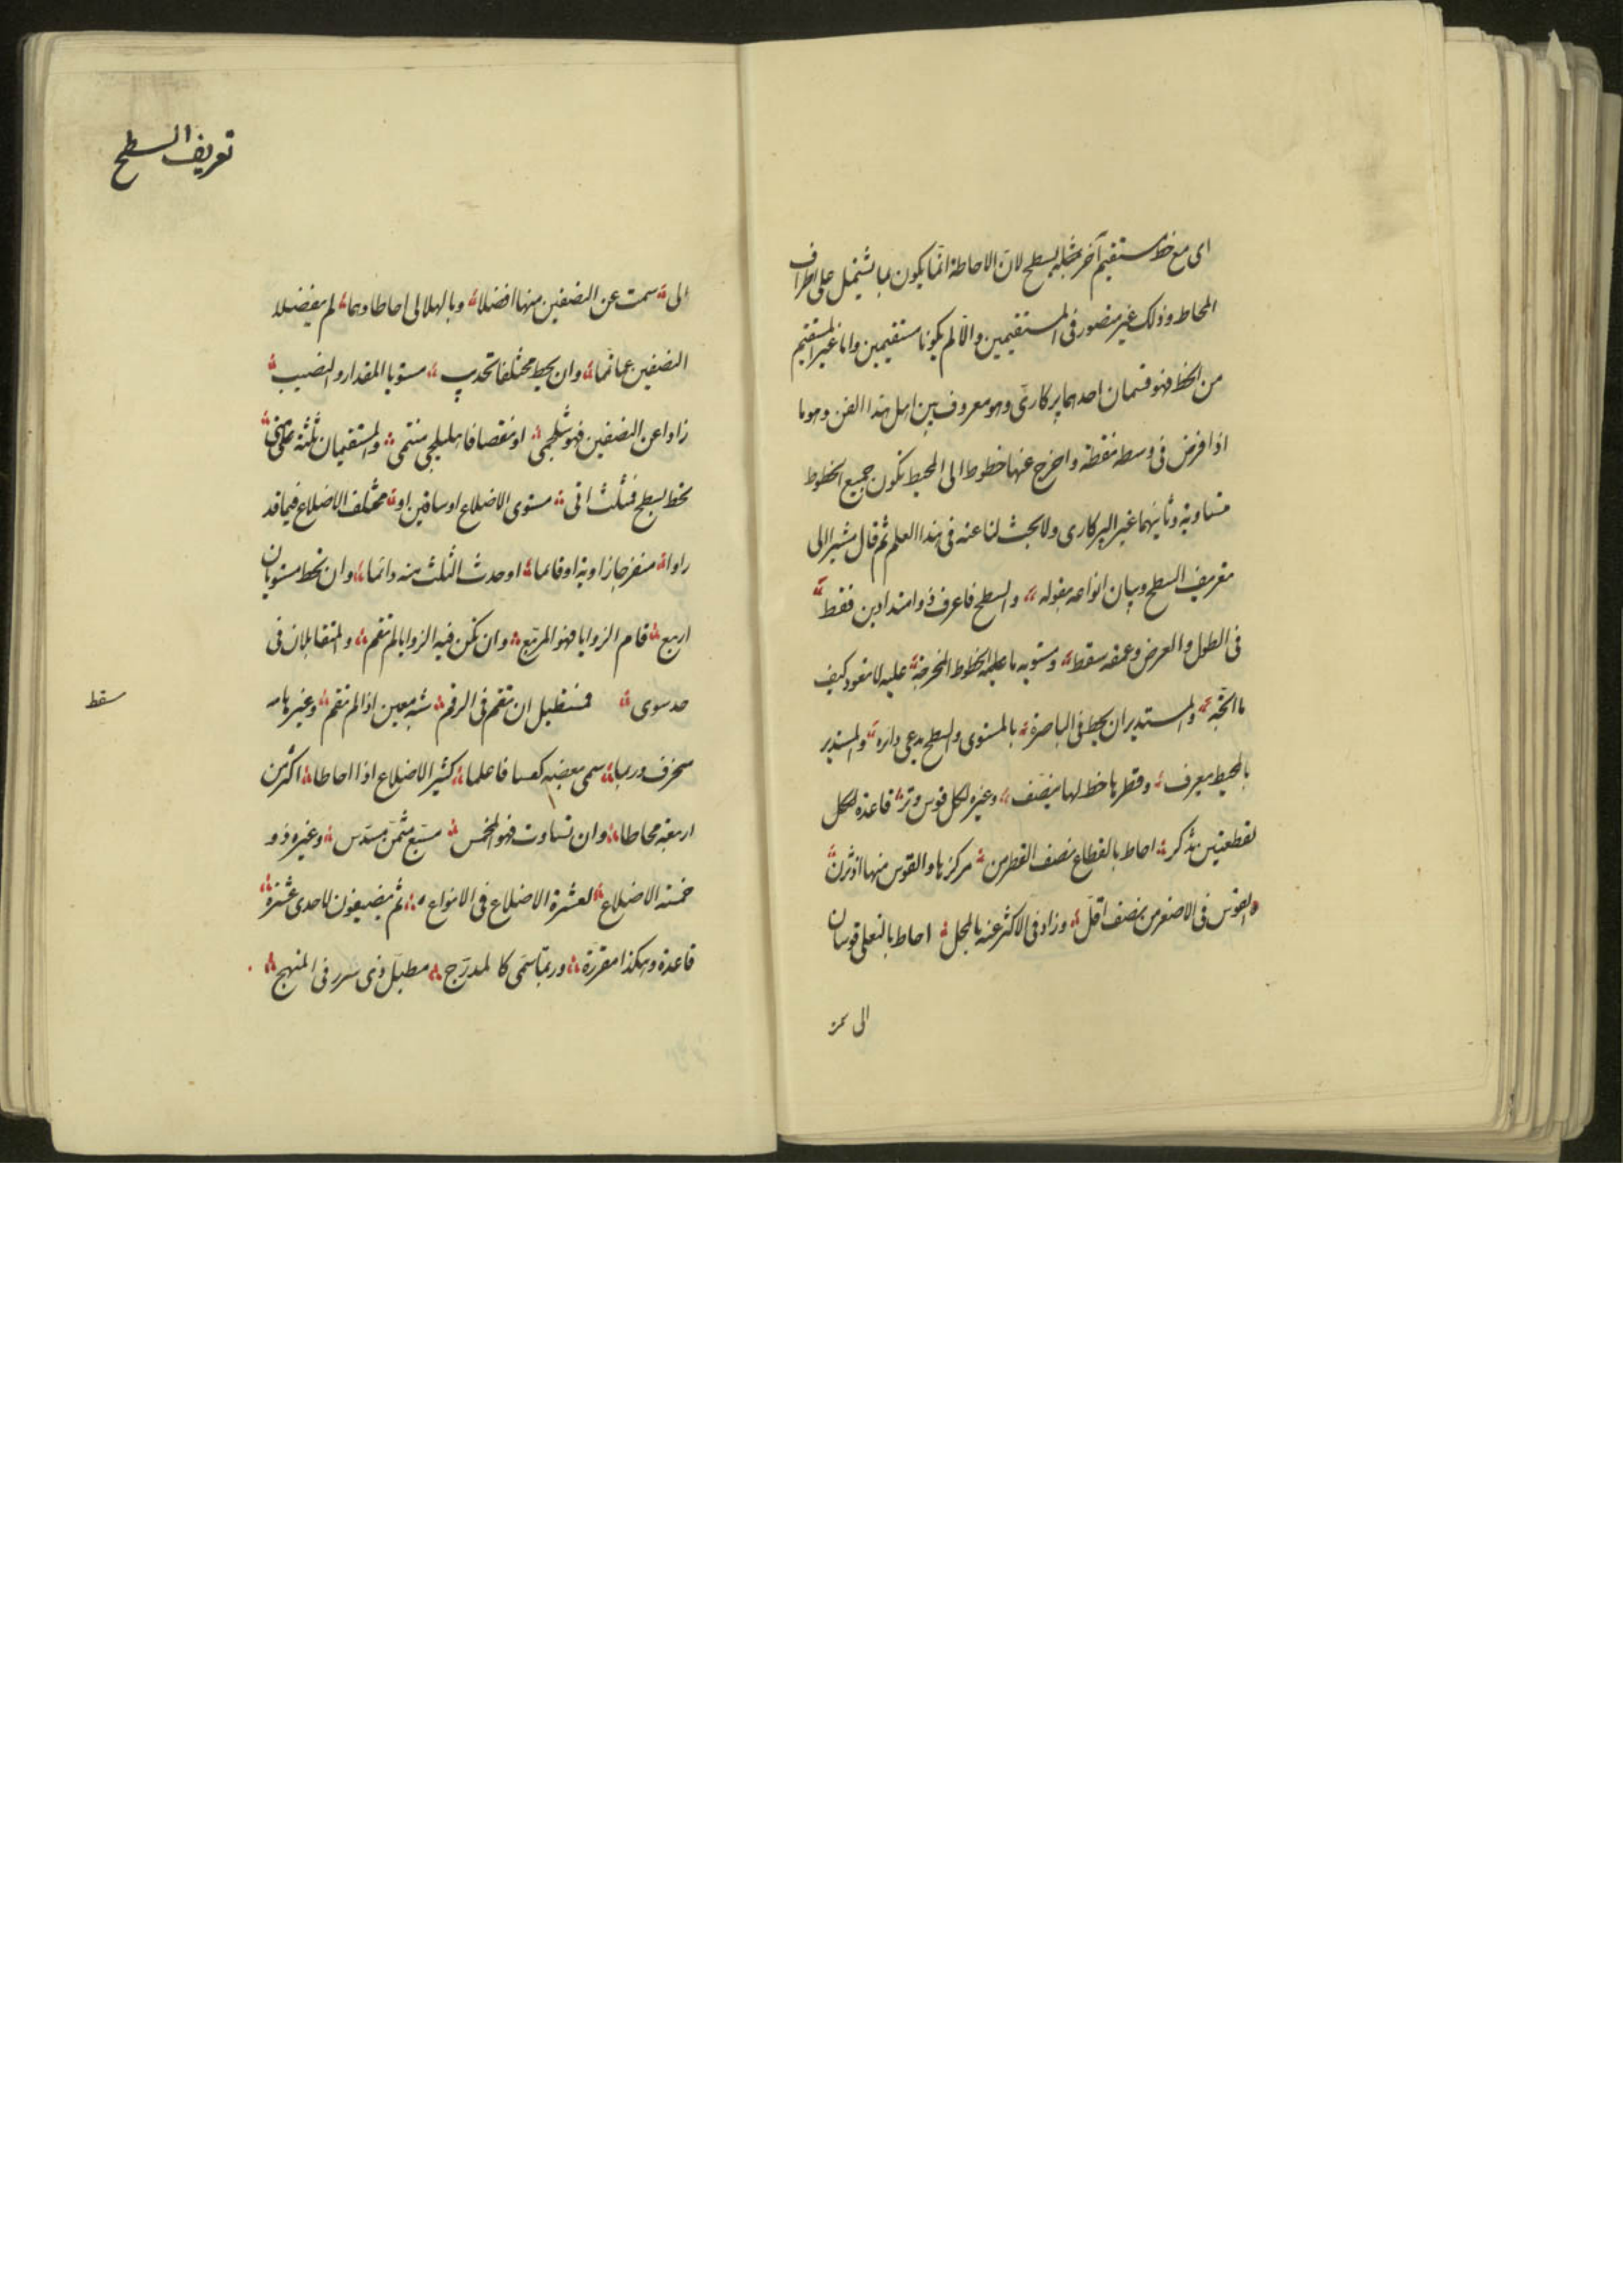 اى مع خط مستقيم آخر مثله بسطح لانّ الاحاطة انّما يكون بما يشتمل على اطراف
المحاط وذلك غير متصور فى المستقيمين والّا لم يكونا مستقيمين وامّا غير المستقيم
من الخط فهو قسمان احدهما پركارىّ وهو معروف بين اهل هذا الفن وهو ما
اذا فرض فى وسطه نقطة واخرج عنها خطوط الى المحيط تكون جميع الخطوط
متساوية وثانيهما غير الپركارى ولا بحث لنا عنه فى هذا العلم ثم قال مشيرا الى
تعريف السطح وبيان انواعه بقوله والسطح فاعرف ذو امتدادين فقط
فى الطول والعرض وعمقه سقط ومستويه ما عليه الخطوط المخرجة عليه لا تعود كيف
ما اتجه والمستدير ان يحيط فى الباصرة بالمستوى والسطح يدعى دائره والمستدير
بالمحيط يعرف وقطرها خط لها ينصّف وغيره لكل قوس وتر قاعدة لكل
لقطعتين تذكر احاط بالقطاع نصف القطر من مركزها والقوس منها
والقوس فى الاصغر من نصف اقلّ وزاد فى الاكثر عنه بالمحل احاط بالنعلى قوسان
الى سمت
تعريف السطح
الى سمت عن النصفين منها افضلا وبالهلالى احاطا وهما لم يفضلا
النصفين وان يحيط مختلفا تحديب مستويا المقدار والنصيب
زادا عن النصفين فهو شلجمى او نقصا فاهليلجى منتمى والمستقيمان ثلثة
تحط بسطح فمثلث اتى مستوى الاضلاع او ساقين او مختلف الاضلاع فيما قد
راوا منفرجا زاوية او قائما او حدث الثلث منه دائما وان تحط مستويان
اربع قام الزوايا فهو المربّع وان تكن فيه الزوايا لم تقم والمتقابلان فى
حد سوى فمستطيل ان تقم فى الرقم شبه معين اذا لم تقم وغيرها
منحرف وربما سمى بعضه فاعلما كثير الاضلاع اذا احاطا اكثر من
سقط
اربعة محاطا وان تساوت فهو المخمس مسبّع مثمّن مسدّس وغيره ذو
خمسة الاضلاع لعشرة الاضلاع فى الانواع ثم يضيفون لاحدى عشرة
قاعدة وهكذا مقررة وربّما سمّى كالمدرّج مطبّل وذى شرر فى المنهج